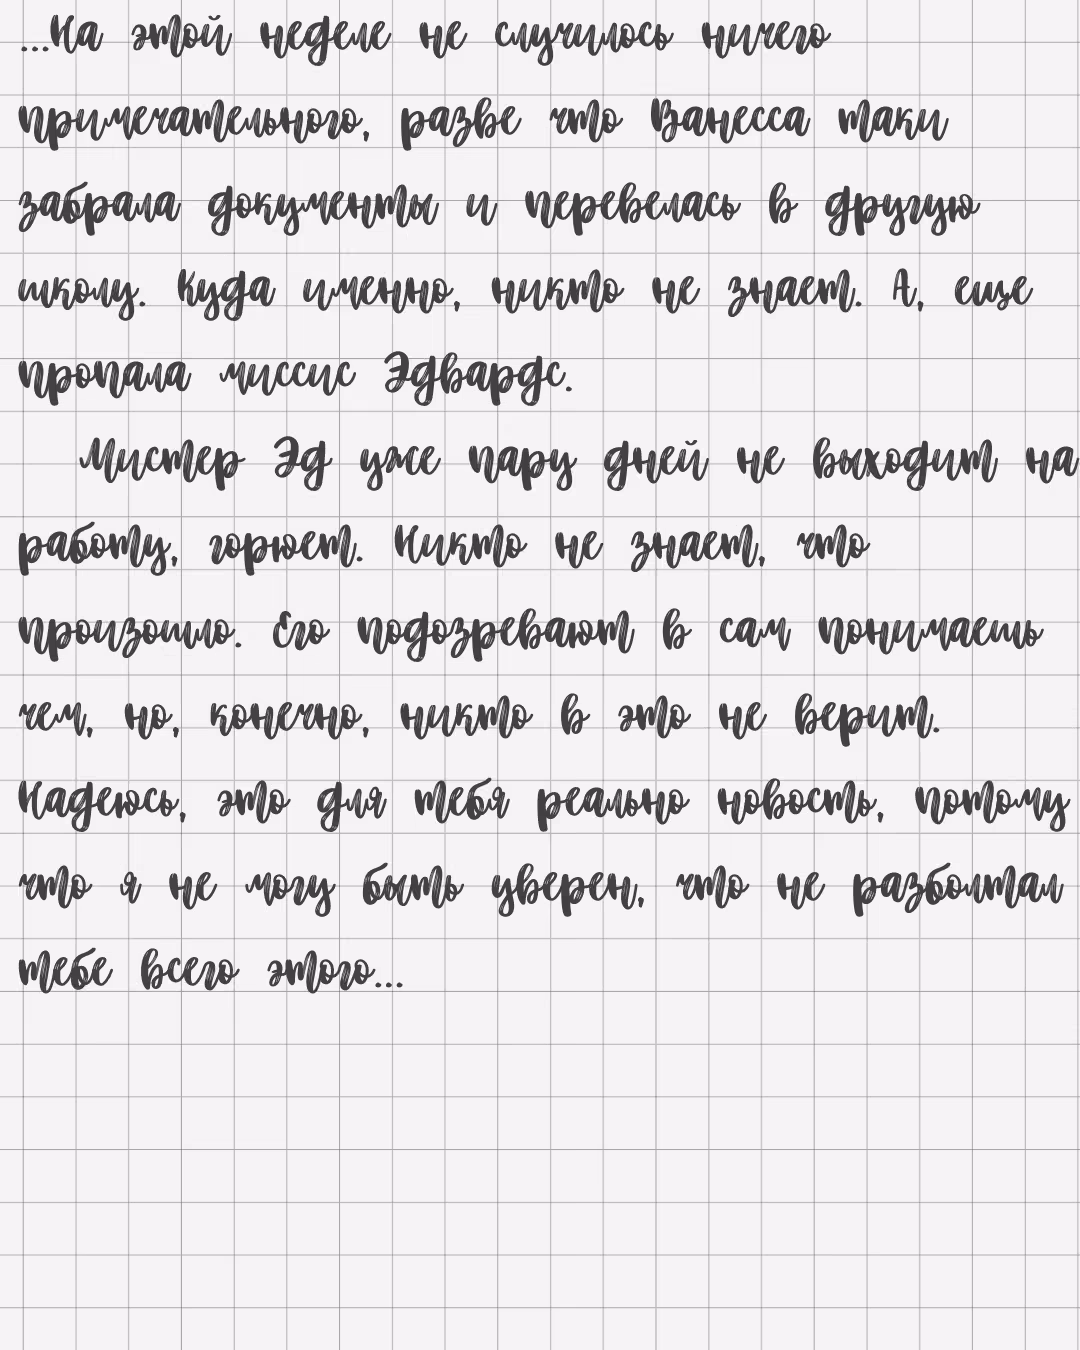 ...На этой неделе не случилось ничего
примечательного, разве что Ванесса таки
забрала документы и перевелась в другую
школу. Куда именно, никто не знает. А, еще
пропала миссис Эдвардс.
Мистер Эд уже пару дней не выходит на
работу, горюет. Никто не знает, что
произошло. Его подозревают в сам понимаешь
чем, но, конечно, никто в это не верит.
Надеюсь, это для тебя реально новость, потому
что я не могу быть уверен, что не разболтал
тебе всего этого...